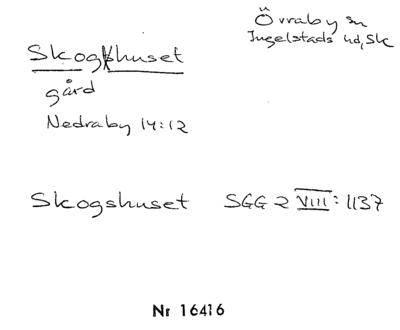 Skogshuset
gård
Nedraby 14:12
Övraby sn
Ingelstads hd, Sk
Skogshuset SGG 2 VIII: 1137
Nr 16416